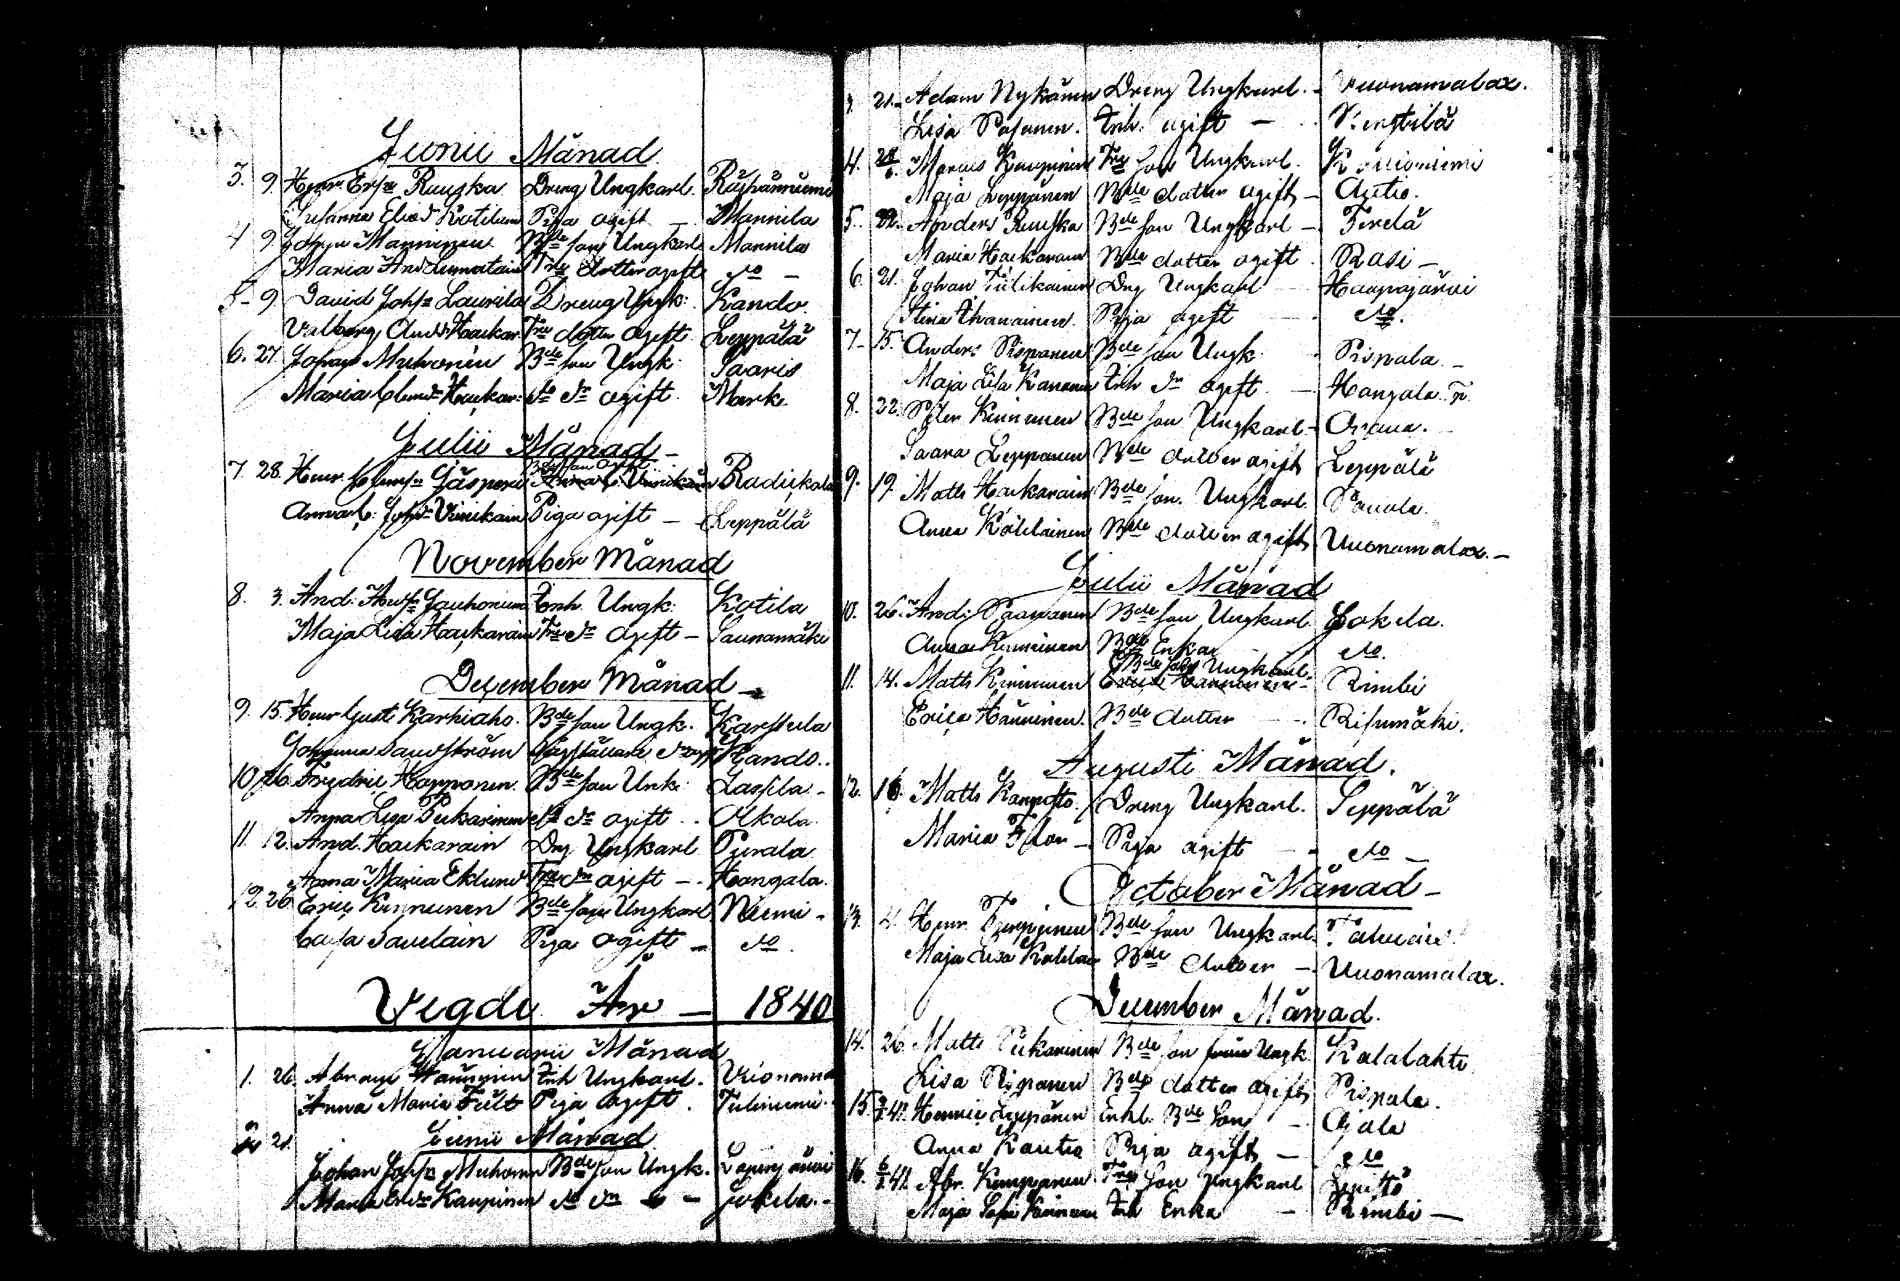 Junii Månad
3. 9. Henr Ersn Ruuska Dreng Ungkarl. Räihänniemi
Susanna Eliæd Kotilain Piga ogift — Mannila
4 9. Johan Manninen Bde son Ungkarl Mannila
Maria And Lumatain Tre dotter ogift do —
5 - 9. David Johsn Laurila Dreng Ungk: Kando
Valborg Andsdr Hackar Tre dotter ogift Leppälä
6. 27. Johan Muhonen Bde son Ungk Saaris
Maria Clemdr Hackar do dr ogift Mark.
Julii Månad —
7. 28. Henr. Clemsn Jäsperi Bde son Radickala
Anna C: Johdr Vinikain Piga ogift — Leppälä
November Månad
8. 3. And. Andsn Jauhonien Inh. Ungk: Kotila
Maja Lisa Hackarain Tre dr ogift — Saunamäki
December Månad —
9. 15. Henr Gust Karhiaho. Bde son Ungk. Karstula
Johanna Sandström Kando..
10 26. Fredric Hopponen. Bde son Unk: Lassila —
Anna Lisa Pekarinen do dr ogift .. Olkola.
11. 12. And. Hackarain Drg Ungkarl Purala
Anna Maria Eklund Tre dr ogift —. Hangala.
12. 26. Eric Kinnunen Bde son Ungkarl Niemi —
Cajsa Savelain Piga ogift — do.
Vigde År — 1840
Januarii Månad
1. 26. Abram Hänninen Inh Ungkarl. Vuonama
Anna Maria Fält Piga ogift. Tuliniemi.
Junii Månad
2 21. Johan Johsn Muhonen Bde son Ungk. Lapinjärvi
Maria Ersdr Kaupinen do dr — Jokela. —
3 21. Adam Nykänen Dreng Ungkarl. — Vuonamalax.
Lisa Pasanen. Inh. ogift — Pengtilä
4. Marcus Kaupinen Tre son Ungkarl. Kolluniemi
Maja Leppänen Bde dotter ogift — Autio.
5. 22. Anders Ruuska Bde son Ungkarl — Terelä
Maria Hackarain Bde dotter ogift. Rasi —
6. 21. Johan Tulikainen Drg Ungkarl — Haapajärvi
Stina Ihanainen. Piga ogift — do.
7 — 15. Anders Piipanen Bde son Ungk. Piipala —
Maja Lisa Kananen Inh dr ogift. — Hangala.
8. 22. Peter Kinnunen Bde son Ungkarl — Orana.
Saara Leppänen Bde dotter ogift Leppälä
9. 19. Matts Hackarain Bde son. Ungkarl Panala.
Anna Kälkäinen Bde dotter ogift Vuonamalax. —
Julii Månad
10. 26. And: Paananen Bde son Ungkarl. Jokela.
Anna Kinnunen Bde Enka do.
11. 14. Matts Kinnunen Bde son Ungkarl — Rimbi
Erica Hänninen. Bde dotter — Risumäki.
Augusti Månad.
12. 16. Matts Kangasto. Dreng Ungkarl. Leppälä
Maria Flor — Piga ogift — do —
October Månad —
13. 4. Henr. Turppinen Bde son Ungkarl.
Maja Lisa Kälkäi Bde dotter — Vuonamalax.
December Månad.
14. 26. Matts Pekarinen Bde son Ungk. Kalalahti
Lisa Piipanen Bde dotter ogift Piipala.
15. 41. Henric Leppänen Enkl. Bde son — Ojala
Anna Rautio Piga ogift — do
16. 41. Abr. Kumpanen. Tre son Ungkarl
Maja Sofia Kinnunen Inh Enka — Rimbi —